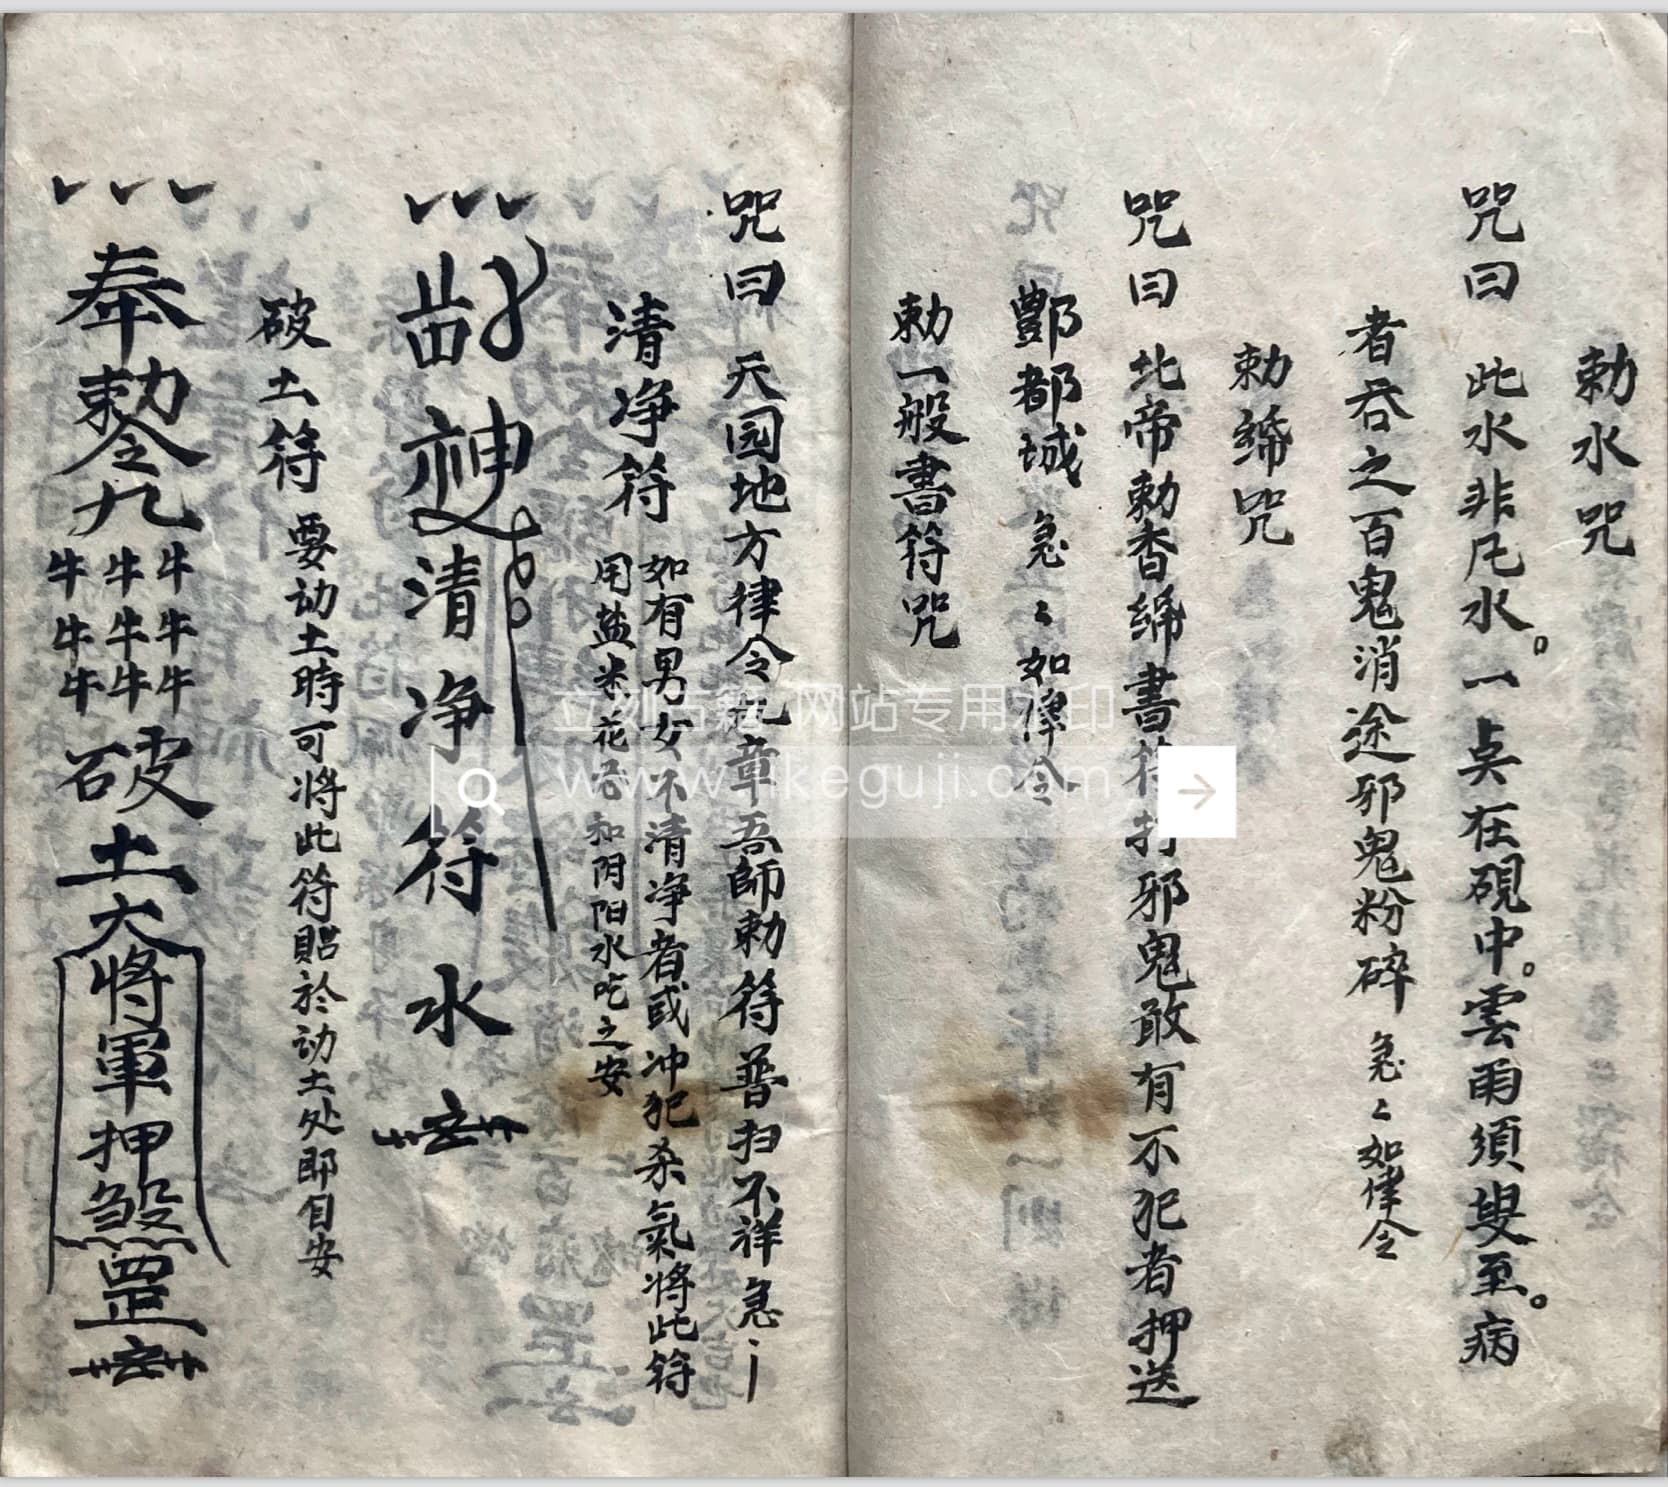 勅水咒
咒曰 此水非凡水。一点在硯中。雲雨須叟至。病
者吞之百鬼消途邪鬼粉碎 急〻如律令
勅符咒
咒曰 北帝勅香绵書符打邪鬼敢有不犯者押送
酆都城 急〻如律令
勅一般書符咒
咒曰 天园地方律令九章吾師勅符普扫不祥急
清净符 如有男女不清净者或冲犯杀氣将此符
用盐米花 和阴阳水吃之安
清净符水
破土符 要动土時可将此符贴於动土处即自安
奉勅令九牛牛牛牛牛牛牛牛牛破土大将軍押煞罡
立刻古籍 网站专用水印
www.likeguji.com